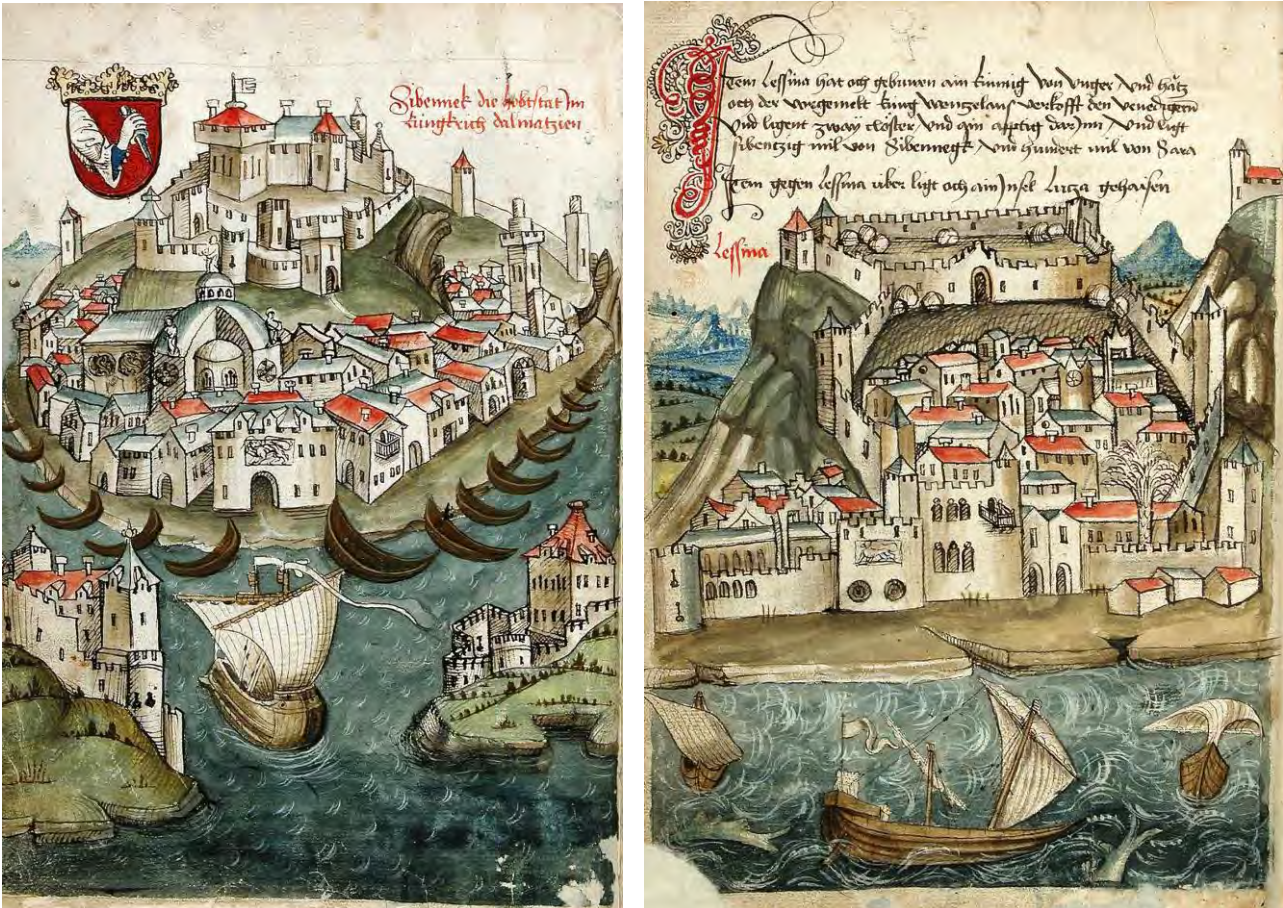 Sibennek die hobtstat Im
kungkrich dalmatzien
Item Lessina hat och gebuwen ain kunnig von Unger Und hatz
och der vorgemelt kung wentzelaus verkofft den venedigern
Und ligent zway closter Und ain apptig dar Inn Und ligt
sibentzig mil von Sibennegk Und hundert mil von Sara
Item gegen Lessina uber ligt och ain Insel Lutza gehaisen
Lessina